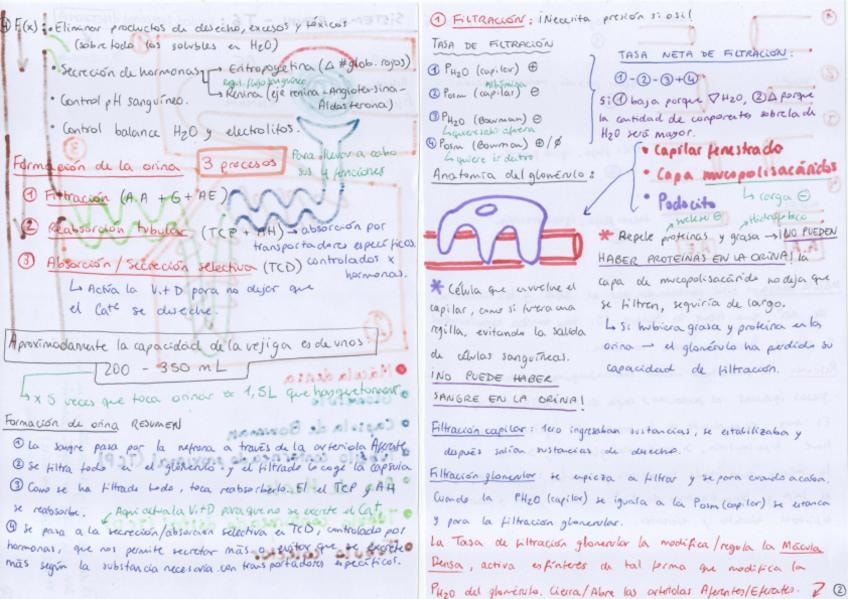 ④ F(x): • Eliminar productos de desecho, excesos y tóxicos
(sobre todo los solubles en H2O)
• Secreción de hormonas → Eritropoyetina (Δ #glob. rojos)
→ Renina (eje renina-Angiotensina-
Aldosterona)
• Control pH sanguíneo.
• Control balance H2O y electrolitos.
Formación de la orina 3 procesos
Para llevar a cabo
sus 4 funciones
① Filtración (AA + G + AE)
② Reabsorción tubular (TCP + AH) → absorción por
transportadores específicos
③ Absorción/Secreción selectiva (TCD) controlados x
hormonas.
↳ Actúa la Vit D para no dejar que
el Ca++ se deseche.
Aproximadamente la capacidad de la vejiga es de unos:
200 - 350 mL
↳ x 5 veces que toca orinar ≈ 1,5L que hay que tomar
Formación de orina RESUMEN
① La sangre pasa por la nefrona a través de la arteriola Aferente
② Se filtra todo en el glomérulo y el filtrado lo coge la cápsula
③ Como se ha filtrado todo, toca reabsorberlo. El el TCP y AH
se reabsorbe.
Aquí actúa la Vit D para que no se excrete el Ca++
④ Se pasa a la secreción/absorción selectiva en TCD, controlado por
hormonas, que nos permite secretar más o evitar que se excrete
más según la substancia necesaria con transportadores específicos.
① FILTRACIÓN: ¡Necesita presión sí o sí!
TASA DE FILTRACIÓN
① PH2O (capilar) ⊕
② Posm (capilar) ⊖
Albúmina
③ PH2O (Bowman) ⊖
④ Posm (Bowman) ⊕/∅
↳ quiere ir dentro
TASA NETA DE FILTRACIÓN:
①-②-③+④
Si ① baja porque ∇ H2O, ② Δ porque
la cantidad de componentes sobre la de
H2O será mayor.
Anatomía del glomérulo:
• Capilar fenestrado
• Capa mucopolisacáridos
↳ carga ⊖
• Podocito
Hidrofílico
* Célula que envuelve el
capilar, como si fuera una
rejilla, evitando la salida
de células sanguíneas.
¡NO PUEDE HABER
SANGRE EN LA ORINA!
* Repele proteínas y grasa → ¡NO PUEDEN
HABER PROTEÍNAS EN LA ORINA! la
capa de mucopolisacárido no deja que
se filtren, seguiría de largo.
↳ Si hubiera grasa y proteína en la
orina → el glomérulo ha perdido su
capacidad de filtración.
Filtración capilar: 1ero ingresaban sustancias, se estabilizaba y
después salían sustancias de desecho.
Filtración glomerular: se empieza a filtrar y se para cuando acaba.
Cuando la PH2O (capilar) se iguala a la Posm (capilar) se estanca
y para la filtración glomerular.
La Tasa de filtración glomerular la modifica/regula la Mácula
Densa, activa esfínteres de tal forma que modifica la
PH2O del glomérulo. Cierra/Abre las arteriolas Aferentes/Eferentes.
②